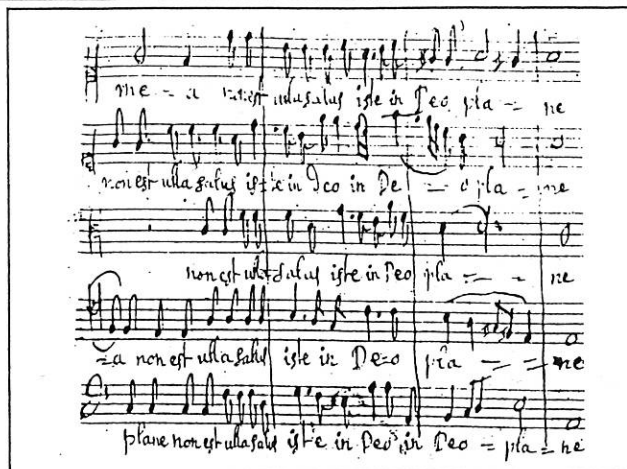 me = a non est ulla salus iste in Deo pla = ne
non est ulla salus iste in Deo in De = o pla = ne
non est ulla salus iste in Deo pla = = ne
=a non est ulla salus iste in De=o pla = = ne
plane non est ulla salus iste in Deo, in Deo = pla = ne